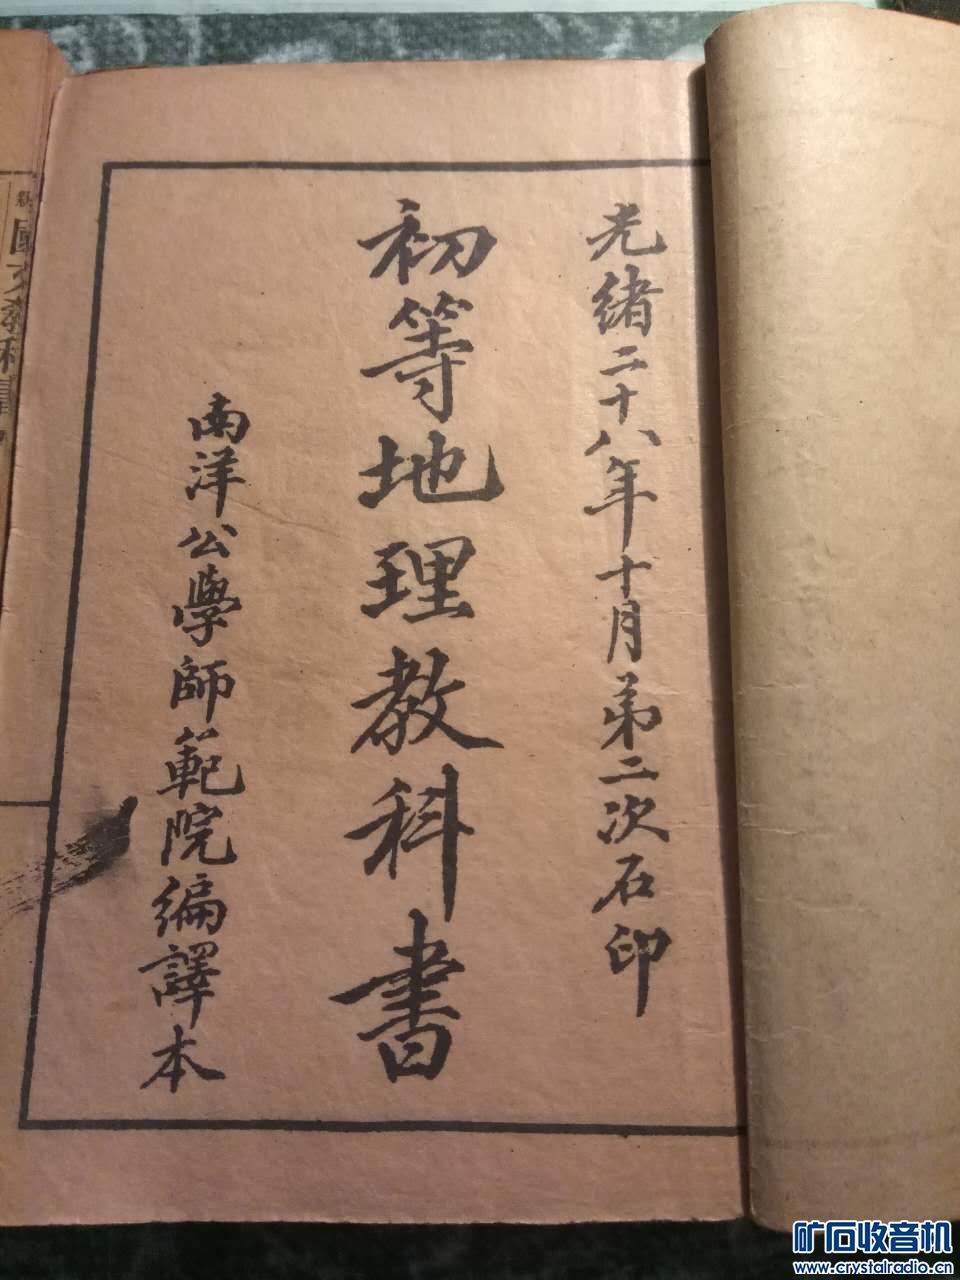 光緒二十八年十月第二次石印
初等地理教科書
南洋公學師範院編譯本
國文教科書
矿石收音机
www.crystalradio.cn